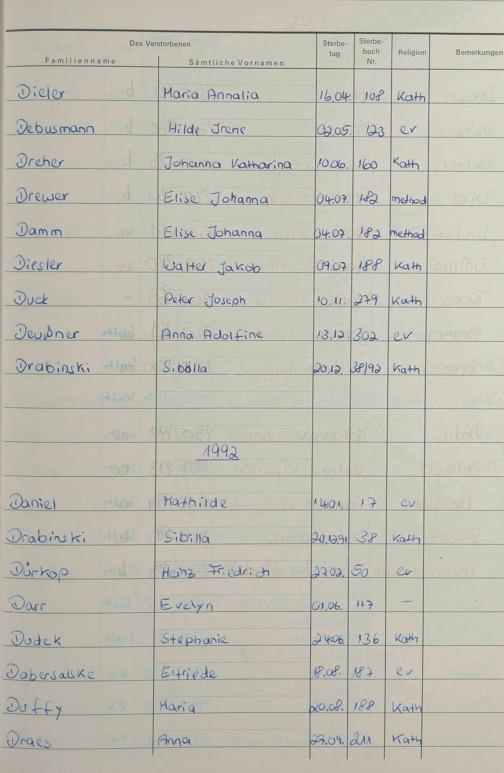 Des Verstorbenen Sterbe- Sterbe-
Familienname Sämtliche Vornamen tag buch Nr. Religion Bemerkungen
Dieler Maria Annalia 16.04. 108 Kath
Debusmann Hilde Irene 02.05. 123 ev
Dreher Johanna Katharina 10.06. 160 Kath
Drewer Elise Johanna 04.07. 182 method
Damm Elise Johanna 04.07. 182 method
Diesler Walter Jakob 09.07 188 Kath
Duck Peter Joseph 10.11. 279 Kath
Deußner Anna Adolfine 13.12. 302 ev
Drabinski Sibilla 20.12. 38/92 Kath
1992
Daniel Mathilde 14.01. 17 ev
Drabinski Sibilla 20.12.91 38 Kath
Dürkop Heinz Friedrich 27.02. 50 ev
Darr Evelyn 01.06. 117 –
Dudek Stephanie 24.06. 136 Kath
Dobersalske Elfriede 18.08. 187 ev
Duffy Maria 20.08. 188 Kath
Draes Anna 27.09. 211 Kath